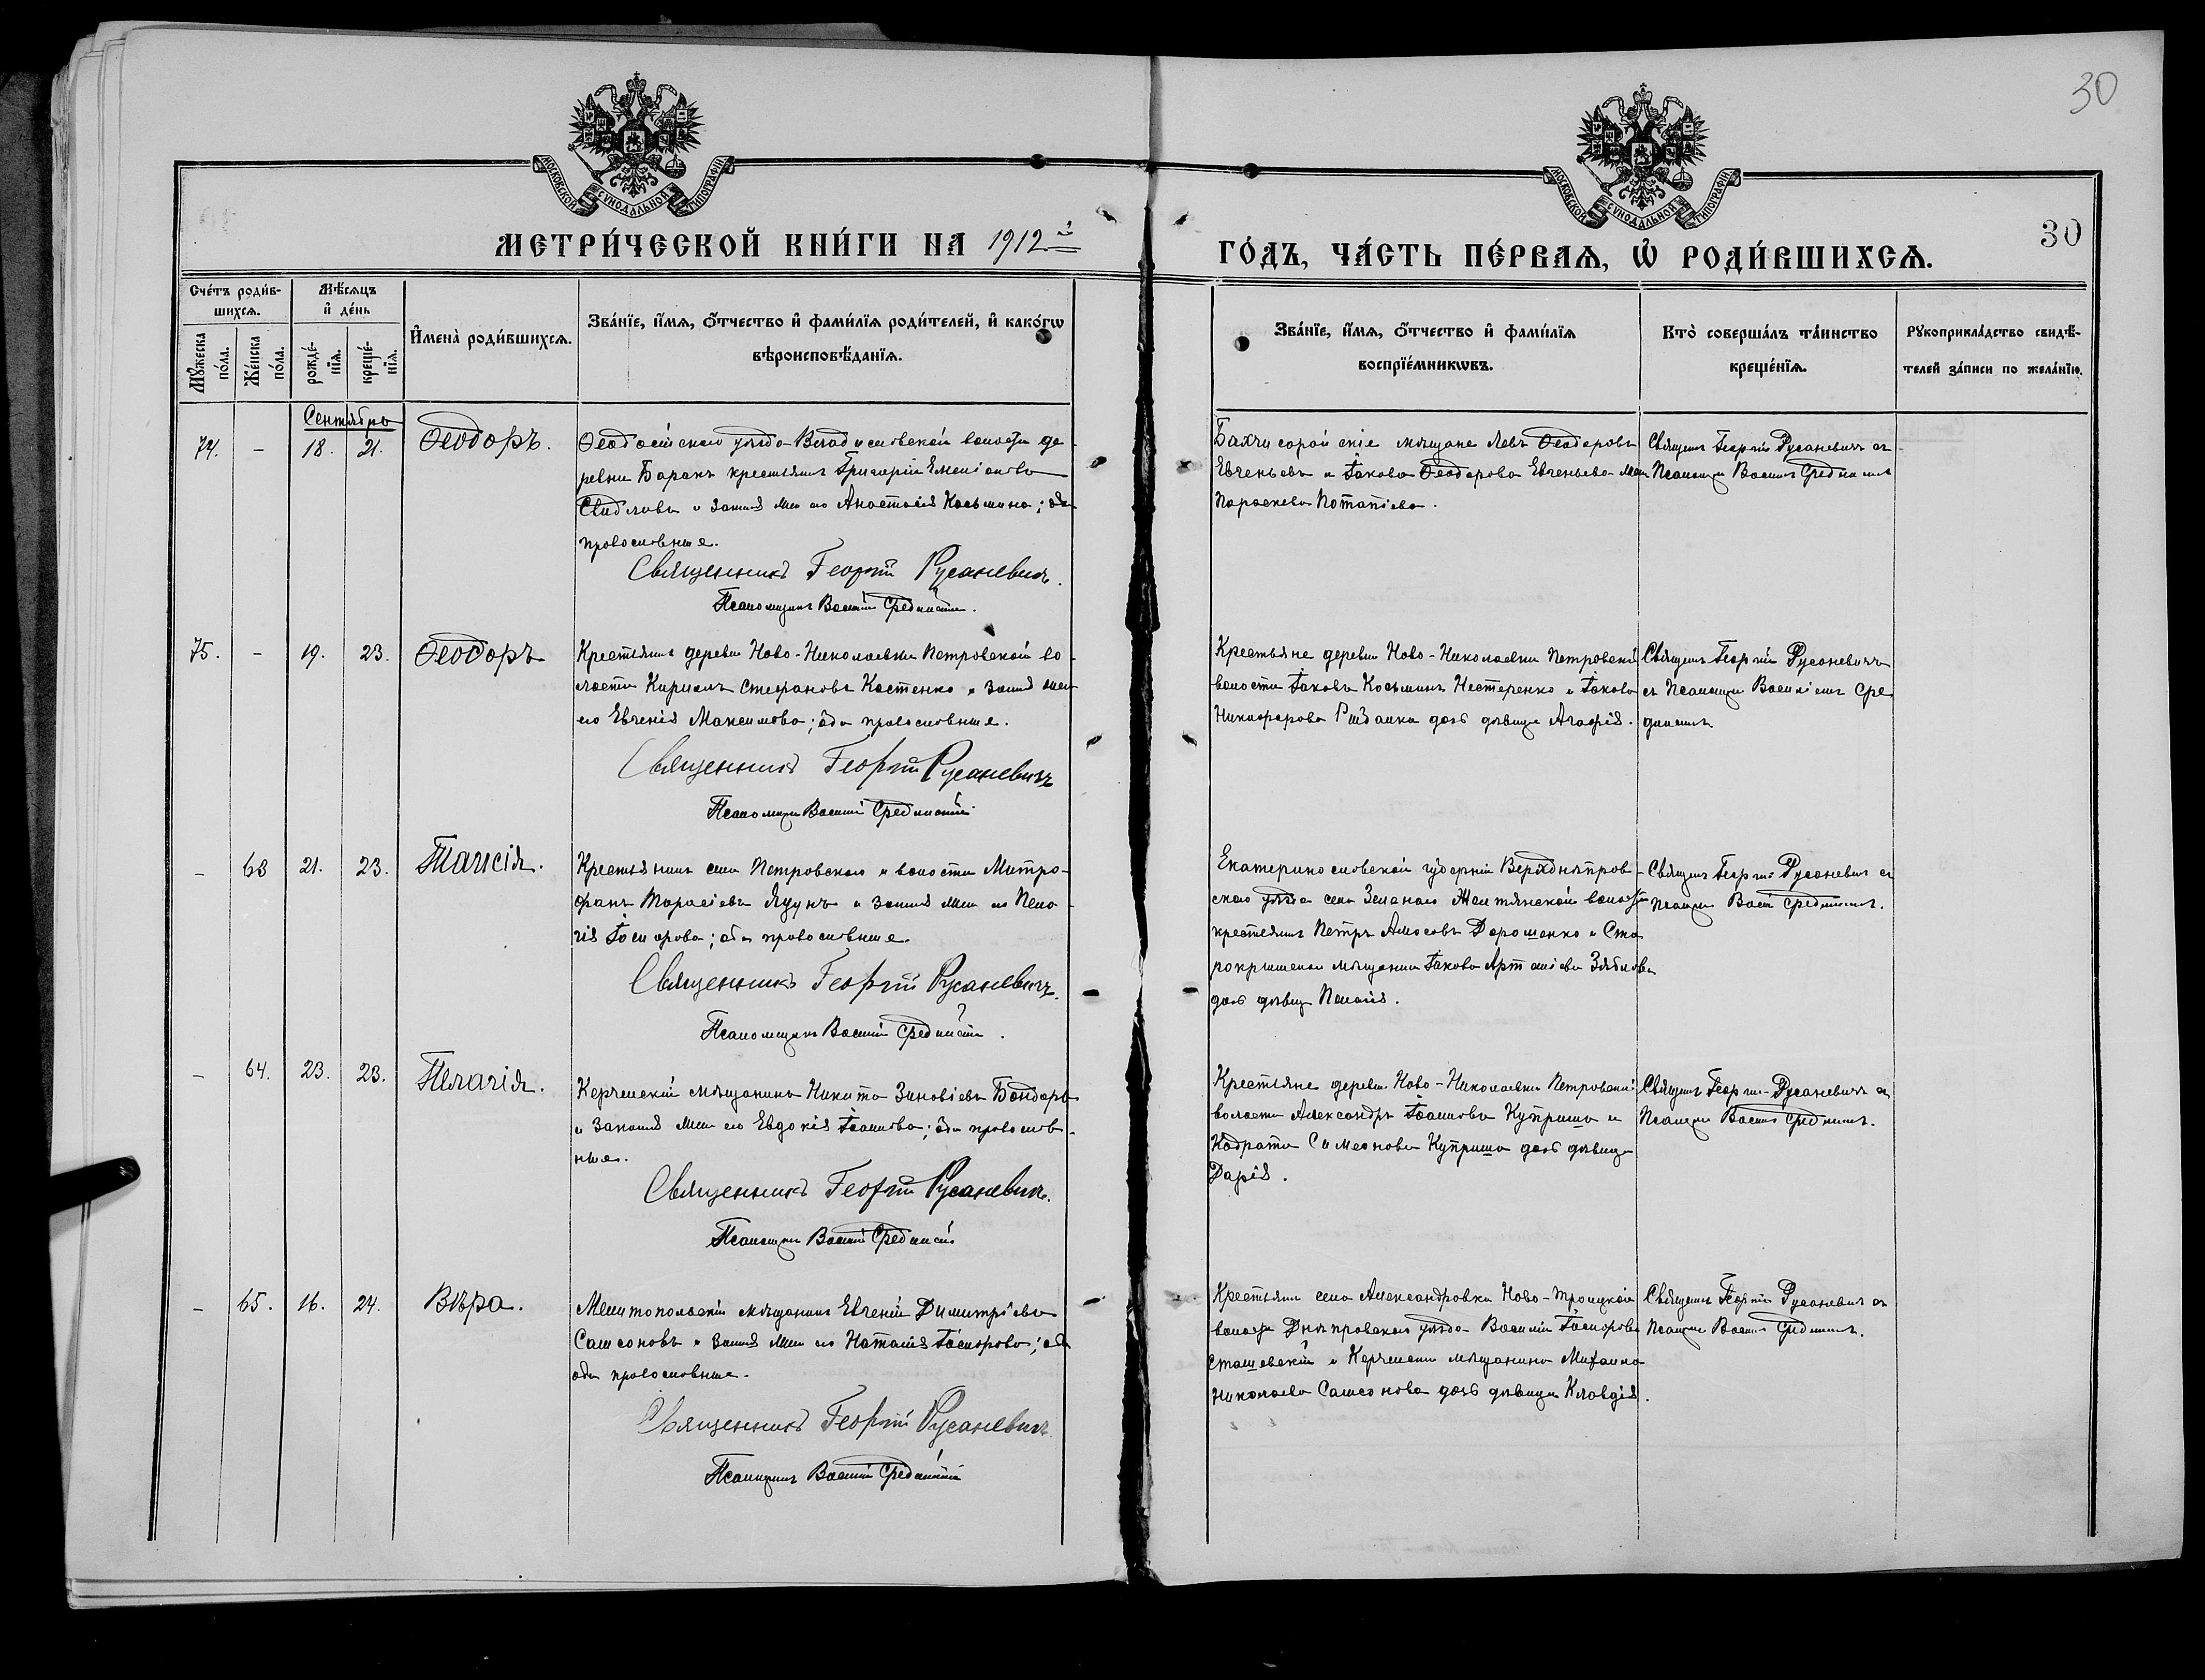 30
МОСКОВСКОЙ СѴНОДАЛЬНОЙ ТИПОГРАФІИ
МОСКОВСКОЙ СѴНОДАЛЬНОЙ ТИПОГРАФІИ
МЕТРИ́ЧЕСКОЙ КНИ́ГИ НА 1912 й
ГО́ДЪ, ЧА́СТЬ ПЕ́РВАѦ, Ѡ҆ РОДИ́ВШИХСѦ.
30
Сче́тъ роди́в-
шихсѧ.
Мѣ́сѧцъ
и҆ де́нь
Мꙋ́жеска
по́ла.
Же́нска
по́ла.
рожде́-
нїѧ.
креще́-
нїѧ.
И҆мена̀ роди́вшихсѧ.
Зва́нїе, и҆́мѧ, ѻ҆́тчество и҆ фами́лїѧ роди́телей, и҆ како́гѡ
вѣроисповѣ́данїѧ.
Зва́нїе, и҆́мѧ, ѻ҆́тчество и҆ фами́лїѧ
воспрїе́мникѡвъ.
Кто̀ соверша́лъ та́инство
креще́нїѧ.
Рꙋкоприкла́дство свидѣ́-
телей за́писи по жела́нїю.
Сентябрь
74. - 18. 21. Ѳеодоръ.
Ѳеодосійскаго уѣзда Владиславской волости де-
ревни Баракъ крестьянинъ Григорій Емеліановъ
и законная жена его Анастасія Косьмина; оба
православные.
Священникъ Георгій Русаневичъ.
Псаломщикъ Василій Срединскій.
Бахчисарайскіе мѣщане Левъ Ѳеодоровъ
Евгеньевъ и Іакова Ѳеодорова Евгеньева жена
Параскева Потапіева.
Священ. Георгій Русаневичъ съ
Псаломщ. Василіемъ Срединскимъ
75. - 19. 23. Ѳеодоръ
Крестьянинъ деревни Ново-Николаевки Петровской во-
лости Кириллъ Стефановъ Костенко и закон. жена
его Евгенія Максимова; оба православные.
Священникъ Георгій Русаневичъ
Псаломщикъ Василій Срединскій
Крестьяне деревни Ново-Николаевки Петровской
волости Іаковъ Косьминъ Нестеренко и Іакова
Никифорова дочь дѣвица Агафія.
Священ. Георгій Русаневичъ
съ Псаломщ. Василіемъ Сре-
динскимъ
- 63 21. 23. Таисія.
Крестьянинъ села Петровскаго и волости Митро-
фанъ Тарасіевъ Яцунъ и законная жена его Пела-
гія Іосифова; оба православные
Священникъ Георгій Русаневичъ.
Псаломщикъ Василій Срединскій.
Екатеринославской губерніи Верхднѣпров-
скаго уѣзда села Зеленаго Желтянской волости
крестьянинъ Петръ Амосовъ Дорошенко и Ста-
рокрымскаго мѣщанина Іакова
дочь дѣвица Пелагія.
Священ. Георгій Русаневичъ съ
Псаломщ. Васил. Срединскимъ.
- 64. 23. 23. Пелагія.
Керченскій мѣщанинъ Никита Зиновіевъ Бондарь
и законная жена его Евдокія Іоаннова; оба православ-
ные.
Священникъ Георгій Русаневичъ.
Псаломщикъ Василій Срединскій
Крестьяне деревни Ново-Николаевки Петровской
волости Александръ Іоанновъ Куприша и
Кодрата Симеонова Куприша дочь дѣвица
Дарія.
Священ. Георгій Русаневичъ съ
Псаломщ. Василіемъ Срединскимъ.
- 65. 16. 24. Вѣра.
Мелитопольскій мѣщанинъ Евгеній Димитріевъ
Самсоновъ и законная жена его Наталія; оба
оба православные.
Священникъ Георгій Русаневичъ
Псаломщикъ Василій Срединскій
Крестьянинъ села Александровки Ново-Троицкой
волости Днѣпровскаго уѣзда Василій
Сташевскій и Керченскаго мѣщанина Михаила
Николаева Самсонова дочь дѣвица Клавдія.
Священ. Георгій Русаневичъ съ
Псаломщ. Василіемъ Срединскимъ.